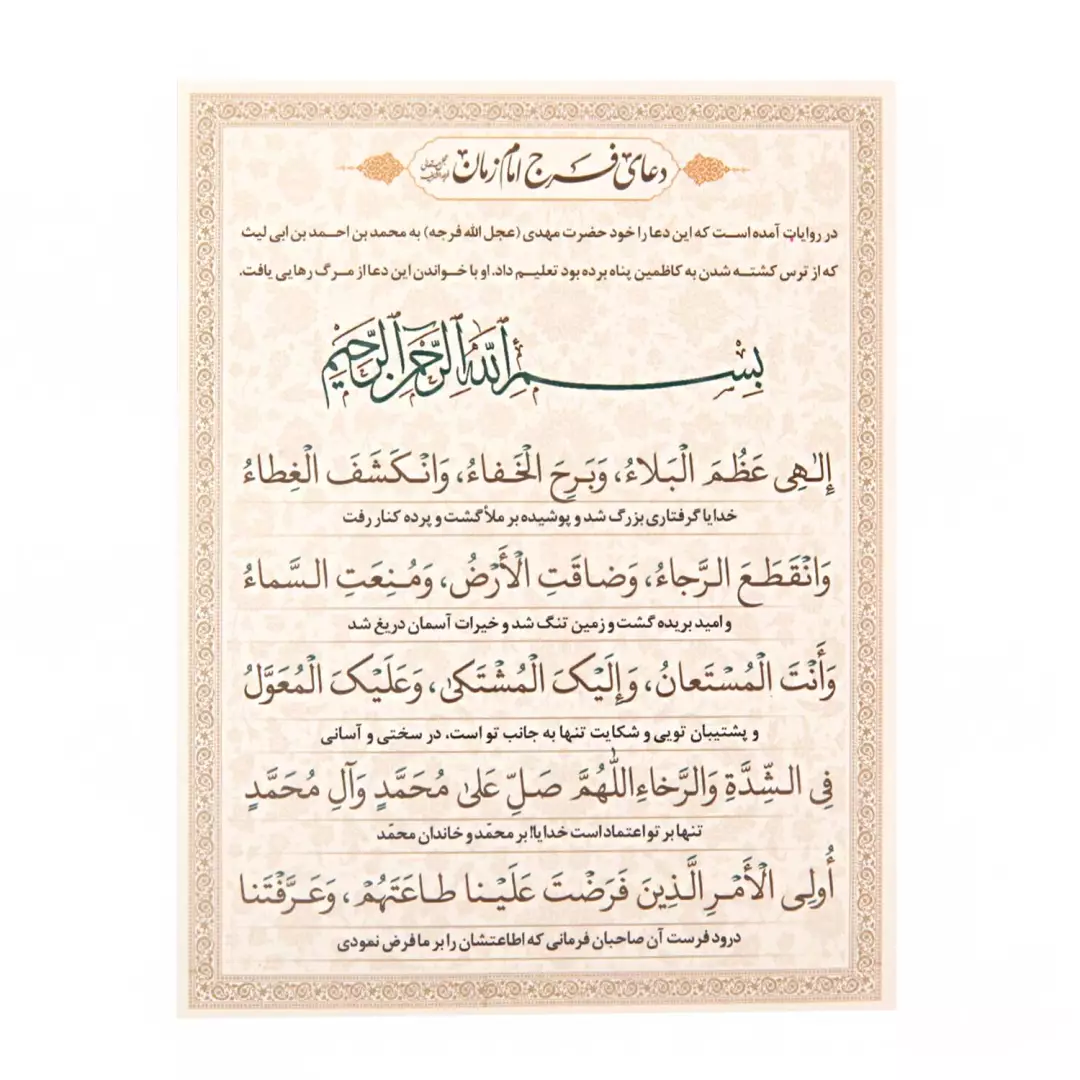 دعای فرج امام زمان
در روایات آمده است که این دعا را خود حضرت مهدی (عجل الله فرجه) به محمد بن احمد بن ابی لیث
که از ترس کشته شدن به کاظمین پناه برده بود تعلیم داد. او با خواندن این دعا از مرگ رهایی یافت.
بِسْمِ اللَّهِ الرَّحْمَنِ الرَّحِيمِ
إِلٰهِی عَظُمَ الْبَلاءُ، وَبَرِحَ الْخَفاءُ، وَانْکَشَفَ الْغِطاءُ
خدایا گرفتاری بزرگ شد و پوشیده بر ملأ گشت و پرده کنار رفت
وَانْقَطَعَ الرَّجاءُ، وَضاقَتِ الْأَرْضُ، وَمُنِعَتِ السَّماءُ
و امید بریده گشت و زمین تنگ شد و خیرات آسمان دریغ شد
وَأَنْتَ الْمُسْتَعانُ، وَإِلَیْکَ الْمُشْتَکىٰ، وَعَلَیْکَ الْمُعَوَّلُ
و پشتیبان تویی و شکایت تنها به جانب تو است، در سختی و آسانی
فِی الشِّدَّةِ وَالرَّخاءِ اللّٰهُمَّ صَلِّ عَلىٰ مُحَمَّدٍ وَآلِ مُحَمَّدٍ
تنها بر تو اعتماد است خدایا! بر محمّد و خاندان محمّد
أُولِی الْأَمْرِ الَّذِینَ فَرَضْتَ عَلَیْنا طاعَتَهُمْ، وَعَرَّفْتَنا
درود فرست آن صاحبان فرمانی که اطاعتشان را بر ما فرض نمودی